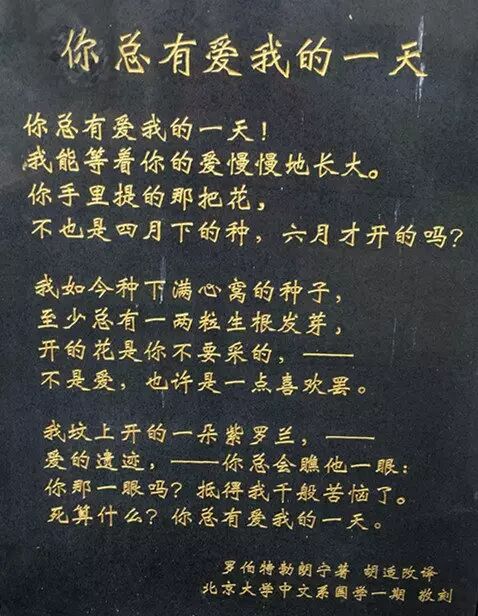 你总有爱我的一天
你总有爱我的一天！
我能等着你的爱慢慢地长大。
你手里提的那把花，
不也是四月下的种，六月才开的吗？
我如今种下满心窝的种子，
至少总有一两粒生根发芽，
开的花是你不要采的，——
不是爱，也许是一点喜欢罢。
我坟上开的一朵紫罗兰，——
爱的遗迹，——你总会瞧他一眼：
你那一眼吗？抵得我千般苦恼了。
死算什么？你总有爱我的一天。
罗伯特勃朗宁著 胡适改译
北京大学中文系国学一期 敬刻